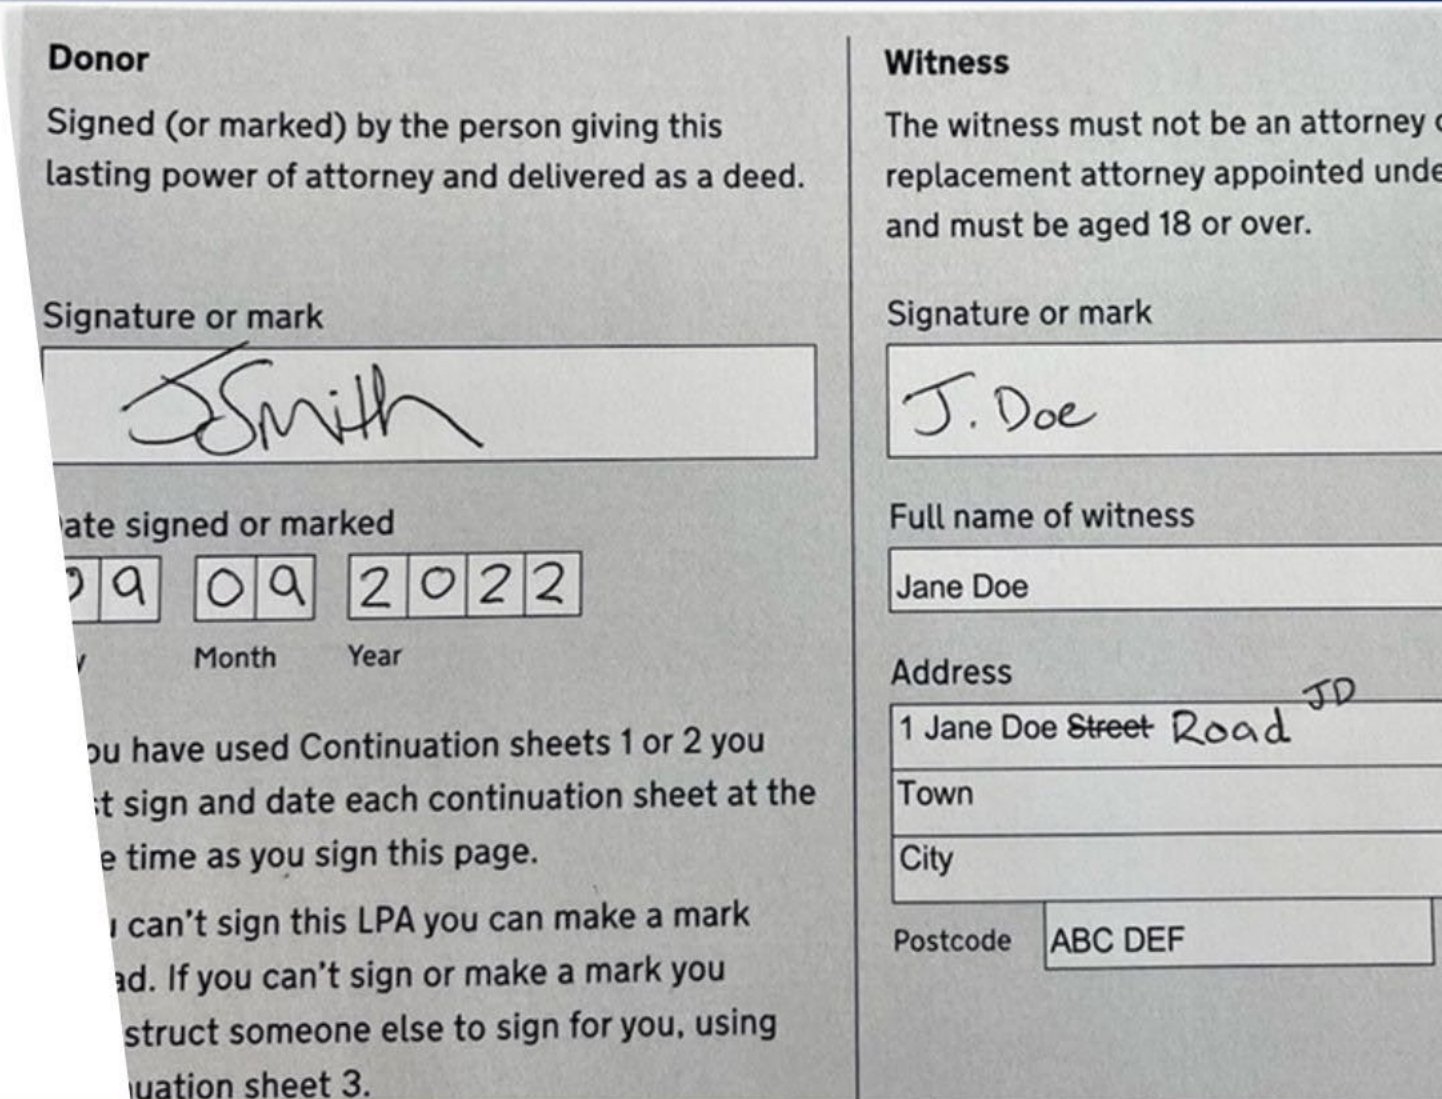 Donor
Signed (or marked) by the person giving this
lasting power of attorney and delivered as a deed.
Signature or mark
JSmith
ate signed or marked
9 09 2022
Month Year
ou have used Continuation sheets 1 or 2 you
st sign and date each continuation sheet at the
e time as you sign this page.
can't sign this LPA you can make a mark
ad. If you can't sign or make a mark you
struct someone else to sign for you, using
uation sheet 3.
Witness
The witness must not be an attorney o
replacement attorney appointed unde
and must be aged 18 or over.
Signature or mark
J. Doe
Full name of witness
Jane Doe
Address
JD
1 Jane Doe Street Road
Town
City
Postcode ABC DEF